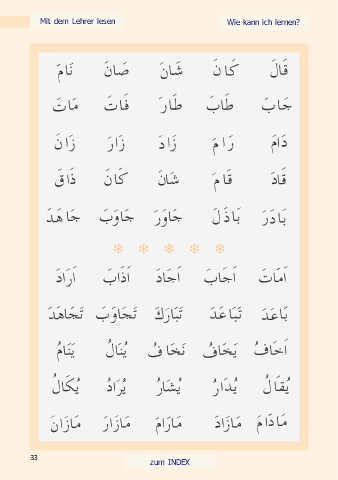 Mit dem Lehrer lesen
Wie kann ich lernen?
قَالَ كَانَ شَانَ صَانَ نَامَ
جَابَ طَابَ طَارَ فَاتَ مَاتَ
دَامَ رَامَ زَادَ زَارَ زَانَ
قَادَ قَامَ شَانَ كَانَ ذَاقَ
بَادَرَ بَاذَلَ جَاوَرَ جَاوَبَ جَاهَدَ
اَمَاتَ اَجَابَ اَجَادَ اَذَابَ اَرَادَ
بَاعَدَ تَبَاعَدَ تَبَارَكَ تَجَاوَبَ تَجَاهَدَ
اَخَافُ يَخَافُ نَخَافُ يُنَالُ يَنَامُ
يُقَالُ يُدَارُ يُشَارُ يُرَادُ يُكَالُ
مَادَامَ مَازَادَ مَارَامَ مَازَارَ مَازَانَ
33
zum INDEX